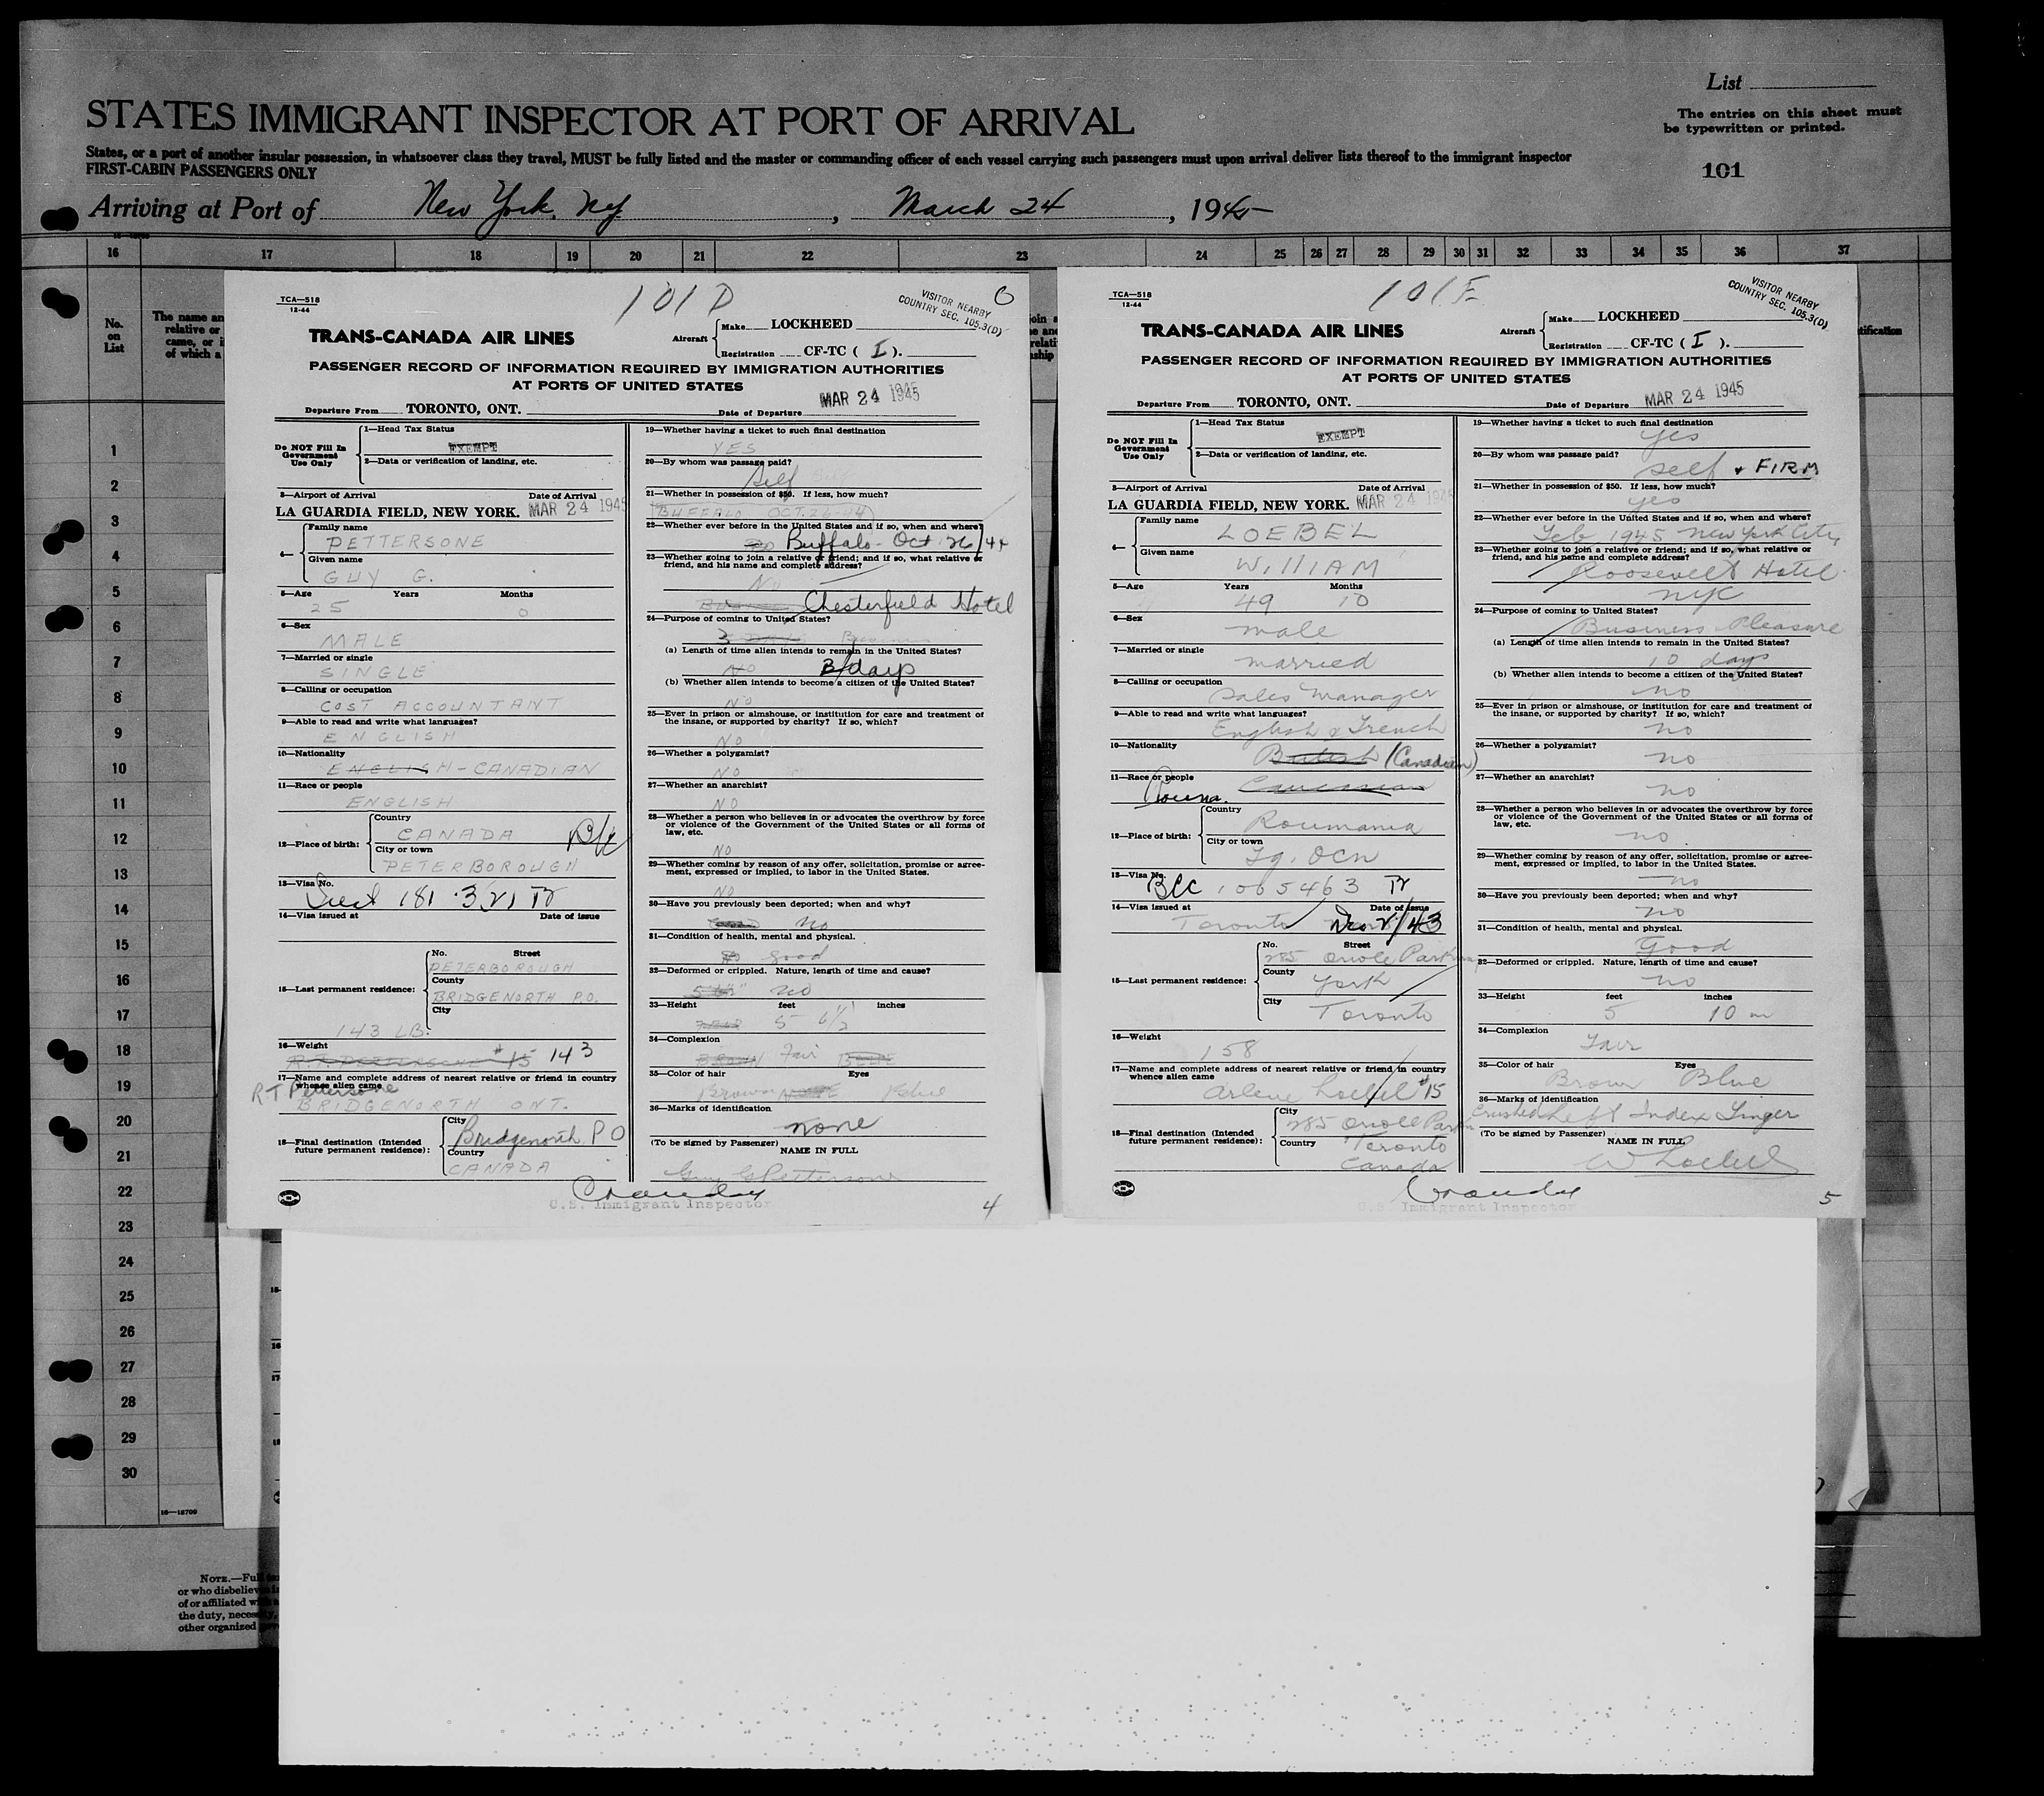 STATES IMMIGRANT INSPECTOR AT PORT OF ARRIVAL
List
The entries on this sheet must
be typewritten or printed.
States, or a port of another insular possession, in whatsoever class they travel, MUST be fully listed and the master or commanding officer of each vessel carrying such passengers must upon arrival deliver lists thereof to the immigrant inspector
FIRST-CABIN PASSENGERS ONLY
101
Arriving at Port of New York, NY, March 24, 1945
16 17 18 19 20 21 22 23 24 25 26 27 28 29 30 31 32 33 34 35 36 37
No.
on
List
The name an
relative or
came, or i
of which a
1
2
3
4
5
6
7
8
9
10
11
12
13
14
15
16
17
18
19
20
21
22
23
24
25
26
27
28
29
30
16—18709
NOTE.—Ful
or who disbeliev
of or affiliated w
the duty, neces
other organized
TCA—518
12-44
101 D
VISITOR NEARBY
COUNTRY SEC. 105.3(D)
TRANS-CANADA AIR LINES
Aircraft
Make LOCKHEED
Registration CF-TC ( I ).
PASSENGER RECORD OF INFORMATION REQUIRED BY IMMIGRATION AUTHORITIES
AT PORTS OF UNITED STATES
Departure From TORONTO, ONT. Date of Departure MAR 24 1945
Do NOT Fill In
Government
Use Only
1—Head Tax Status
EXEMPT
2—Data or verification of landing, etc.
3—Airport of Arrival Date of Arrival
LA GUARDIA FIELD, NEW YORK. MAR 24 1945
4— Family name
PETTERSONE
Given name
GUY G.
5—Age Years Months
25 0
6—Sex
MALE
7—Married or single
SINGLE
8—Calling or occupation
COST ACCOUNTANT
9—Able to read and write what languages?
ENGLISH
10—Nationality
ENGLISH-CANADIAN
11—Race or people
ENGLISH
12—Place of birth:
Country
CANADA
City or town
PETERBOROUGH
13—Visa No.
14—Visa issued at Date of issue
15—Last permanent residence:
No. Street
PETERBOROUGH
County
BRIDGENORTH P.O.
City
143 LB.
16—Weight
R.T. PETTERSONE #15 143
17—Name and complete address of nearest relative or friend in country
whence alien came
R.T Pettersone
BRIDGENORTH ONT.
18—Final destination (Intended
future permanent residence):
City
Bridgenorth P O
Country
CANADA
19—Whether having a ticket to such final destination
YES
20—By whom was passage paid?
Self
21—Whether in possession of $50. If less, how much?
BUFFALO OCT. 26-44
22—Whether ever before in the United States and if so, when and where?
Buffalo - Oct 26/44
23—Whether going to join a relative or friend; and if so, what relative or
friend, and his name and complete address?
NO
Chesterfield Hotel
24—Purpose of coming to United States?
3 DAYS
(a) Length of time alien intends to remain in the United States?
NO 3/days
(b) Whether alien intends to become a citizen of the United States?
NO
25—Ever in prison or almshouse, or institution for care and treatment of
the insane, or supported by charity? If so, which?
NO
26—Whether a polygamist?
NO
27—Whether an anarchist?
NO
28—Whether a person who believes in or advocates the overthrow by force
or violence of the Government of the United States or all forms of
law, etc.
NO
29—Whether coming by reason of any offer, solicitation, promise or agree-
ment, expressed or implied, to labor in the United States.
NO
30—Have you previously been deported; when and why?
no
31—Condition of health, mental and physical.
good
32—Deformed or crippled. Nature, length of time and cause?
no
33—Height feet inches
5 6½
34—Complexion
BROWN Fair
35—Color of hair Eyes
Brown Blue
36—Marks of identification
none
(To be signed by Passenger) NAME IN FULL
Guy G Pettersone
U.S. Immigrant Inspector
4
TCA—518
12-44
101 E
VISITOR NEARBY
COUNTRY SEC. 105.3(D)
TRANS-CANADA AIR LINES
Aircraft
Make LOCKHEED
Registration CF-TC ( I ).
PASSENGER RECORD OF INFORMATION REQUIRED BY IMMIGRATION AUTHORITIES
AT PORTS OF UNITED STATES
Departure From TORONTO, ONT. Date of Departure MAR 24 1945
Do NOT Fill In
Government
Use Only
1—Head Tax Status
EXEMPT
2—Data or verification of landing, etc.
3—Airport of Arrival Date of Arrival
LA GUARDIA FIELD, NEW YORK. MAR 24 1945
4— Family name
LOEBEL
Given name
WILLIAM
5—Age Years Months
49 10
6—Sex
male
7—Married or single
married
8—Calling or occupation
Sales Manager
9—Able to read and write what languages?
English & French
10—Nationality
British (Canadian)
11—Race or people
Rouma. Caucasian
12—Place of birth:
Country
Roumania
City or town
Tg. Ocn
13—Visa No.
BCC 1065463
14—Visa issued at Date of issue
Toronto
15—Last permanent residence:
No. Street
285 Oriole Parkway
County
York
City
Toronto
16—Weight
158
17—Name and complete address of nearest relative or friend in country
whence alien came
Arlene Loebel #15
18—Final destination (Intended
future permanent residence):
City
285 Oriole Park
Toronto
Country
Canada
19—Whether having a ticket to such final destination
yes
20—By whom was passage paid?
self & FIRM
21—Whether in possession of $50. If less, how much?
yes
22—Whether ever before in the United States and if so, when and where?
Feb 1945 New York City
23—Whether going to join a relative or friend; and if so, what relative or
friend, and his name and complete address?
Roosevelt Hotel
NYC
24—Purpose of coming to United States?
Business Pleasure
(a) Length of time alien intends to remain in the United States?
10 days
(b) Whether alien intends to become a citizen of the United States?
no
25—Ever in prison or almshouse, or institution for care and treatment of
the insane, or supported by charity? If so, which?
no
26—Whether a polygamist?
no
27—Whether an anarchist?
no
28—Whether a person who believes in or advocates the overthrow by force
or violence of the Government of the United States or all forms of
law, etc.
no
29—Whether coming by reason of any offer, solicitation, promise or agree-
ment, expressed or implied, to labor in the United States.
no
30—Have you previously been deported; when and why?
no
31—Condition of health, mental and physical.
Good
32—Deformed or crippled. Nature, length of time and cause?
no
33—Height feet inches
5 10
34—Complexion
Fair
35—Color of hair Eyes
Brown Blue
36—Marks of identification
Crushed Left Index Finger
(To be signed by Passenger) NAME IN FULL
W Loebel
U.S. Immigrant Inspector
5